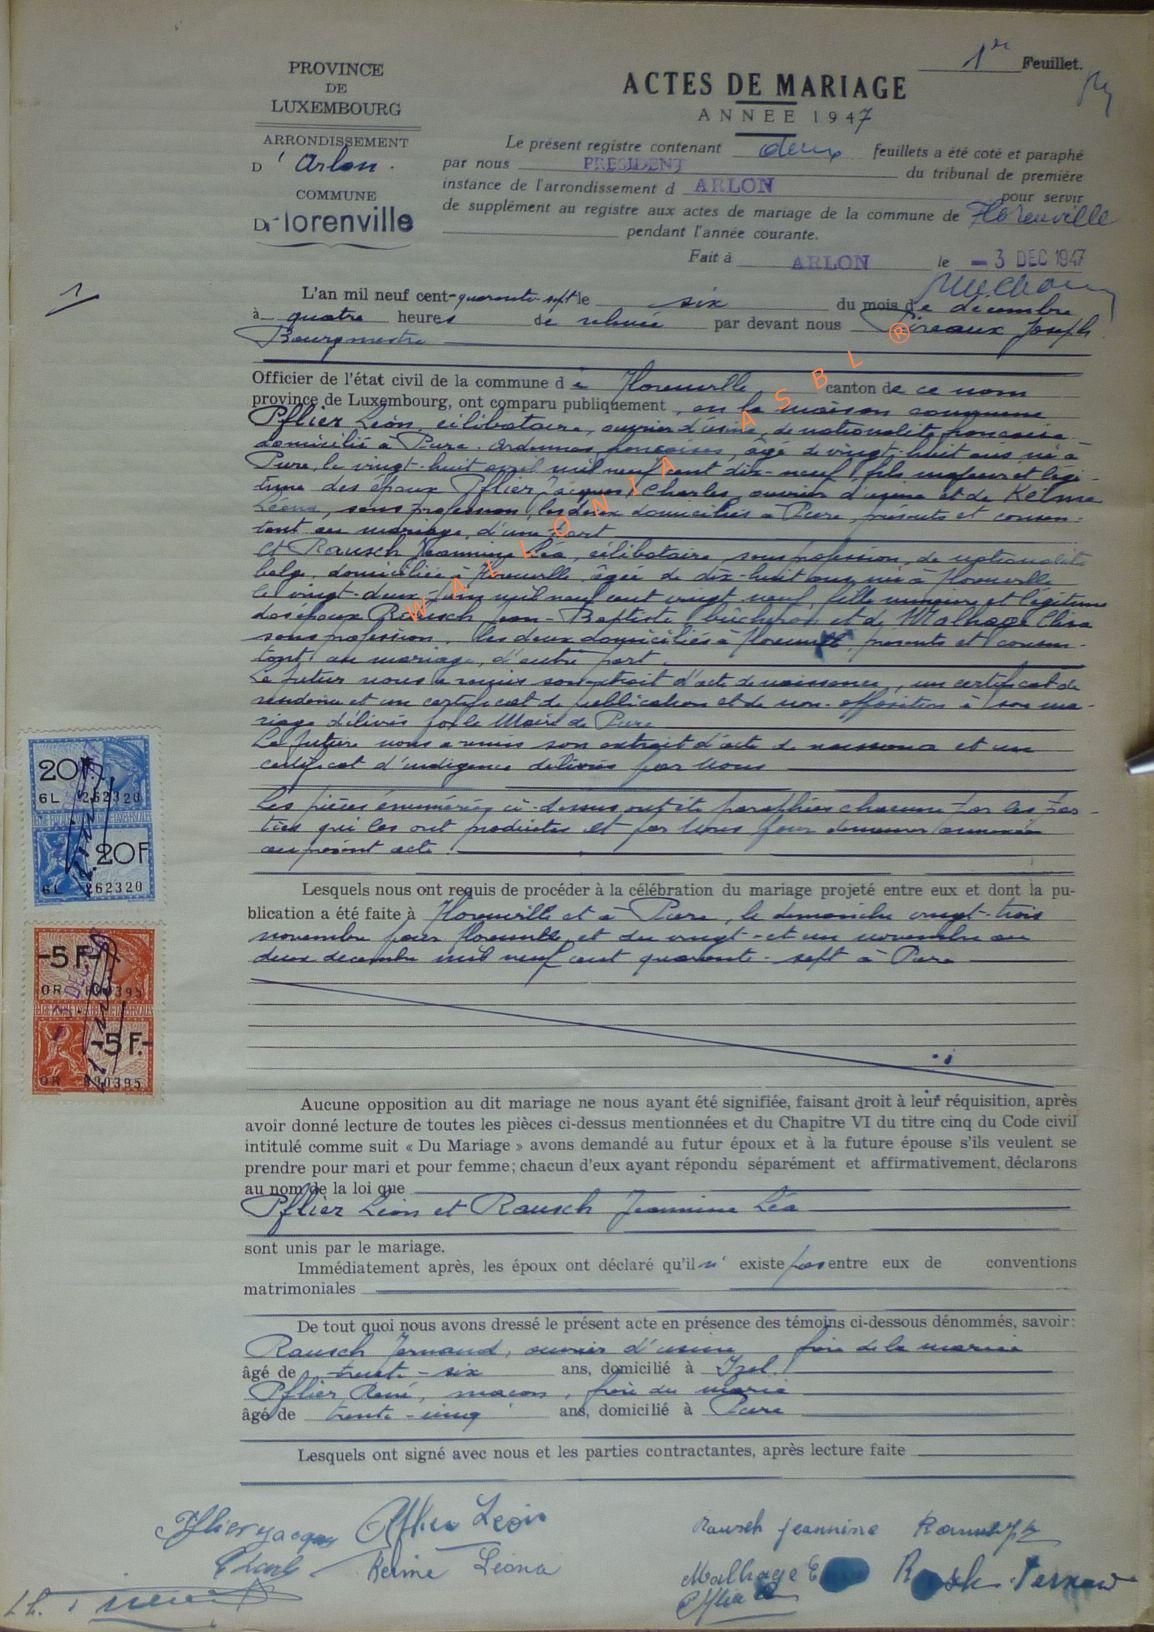 1er Feuillet.
PROVINCE
DE
LUXEMBOURG
ARRONDISSEMENT
D'Arlon.
COMMUNE
De Florenville
ACTES DE MARIAGE
ANNEE 1947
Le présent registre contenant deux feuillets a été coté et paraphé
par nous PRESIDENT du tribunal de première
instance de l'arrondissement d ARLON pour servir
de supplément au registre aux actes de mariage de la commune de Florenville
pendant l'année courante.
Fait à ARLON le - 3 DEC 1947
1
L'an mil neuf cent-quarante-sept le six du mois de décembre
à quatre heures de relevée par devant nous Pireaux Joseph
Bourgmestre
Officier de l'état civil de la commune de Florenville canton de ce nom
province de Luxembourg, ont comparu publiquement, en la maison commune
Pflier Léon, célibataire, ouvrier d'usine, de nationalité française
domicilié à Pure. Ardennes françaises, âgé de vingt-huit ans né à
Pure, le vingt-huit avril mil neuf cent dix-neuf, fils majeur et légi-
time des époux Pflier Jacques Charles, ouvrier d'usine et de Kelme
Léona, sans profession, les deux domiciliés à Pure, présents et consen-
tant au mariage, d'une part
Et Rausch Jeannine Léa, célibataire, sans profession, de nationalité
belge, domiciliée à Florenville âgée de dix-huit ans, née à Florenville
le vingt-deux juin mil neuf cent vingt-neuf, fille mineure et légitime
des époux Rausch Jean-Baptiste bûcheron et de Malhage Elisa
sans profession, les deux domiciliés à Florenville, présents et consen-
tant au mariage, d'autre part.
Le futur nous a remis son extrait d'acte de naissance, un certificat de
résidence et un certificat de publication et de non-opposition à son ma-
riage délivrés par le Maire de Pure
La future nous a remis son extrait d'acte de naissance et un
certificat d'indigence délivrés par Nous
Les pièces énumérées ci-dessus ont été paraphées chacune par les par-
ties qui les ont produites et par Nous pour demeurer annexées
au présent acte.
Lesquels nous ont requis de procéder à la célébration du mariage projeté entre eux et dont la pu-
blication a été faite à Florenville et à Pure, le dimanche vingt-trois
novembre pour Florenville et du vingt-et un novembre au
deux décembre mil neuf cent quarante-sept à Pure
Aucune opposition au dit mariage ne nous ayant été signifiée, faisant droit à leur réquisition, après
avoir donné lecture de toutes les pièces ci-dessus mentionnées et du Chapitre VI du titre cinq du Code civil
intitulé comme suit « Du Mariage » avons demandé au futur époux et à la future épouse s'ils veulent se
prendre pour mari et pour femme; chacun d'eux ayant répondu séparément et affirmativement, déclarons
au nom de la loi que
Pflier Léon et Rausch Jeannine Léa
sont unis par le mariage.
Immédiatement après, les époux ont déclaré qu'il n'existe pas entre eux de conventions
matrimoniales
De tout quoi nous avons dressé le présent acte en présence des témoins ci-dessous dénommés, savoir:
Rausch Fernand, ouvrier d'usine frère de la mariée
âgé de trente-six ans, domicilié à Izel.
Pflier René, maçon, frère du marié
âgé de trente-cinq ans, domicilié à Pure
Lesquels ont signé avec nous et les parties contractantes, après lecture faite
Pflier Jacques Pflier Léon Rausch Jeannine
Charl Kelme Léona Malhage E Rausch Fernand
Pflier R
20F
6L 262320
20F
6L 262320
-5 F.-
OR 890395
-5 F.-
OR 890395
WALLONIA ASBL ®